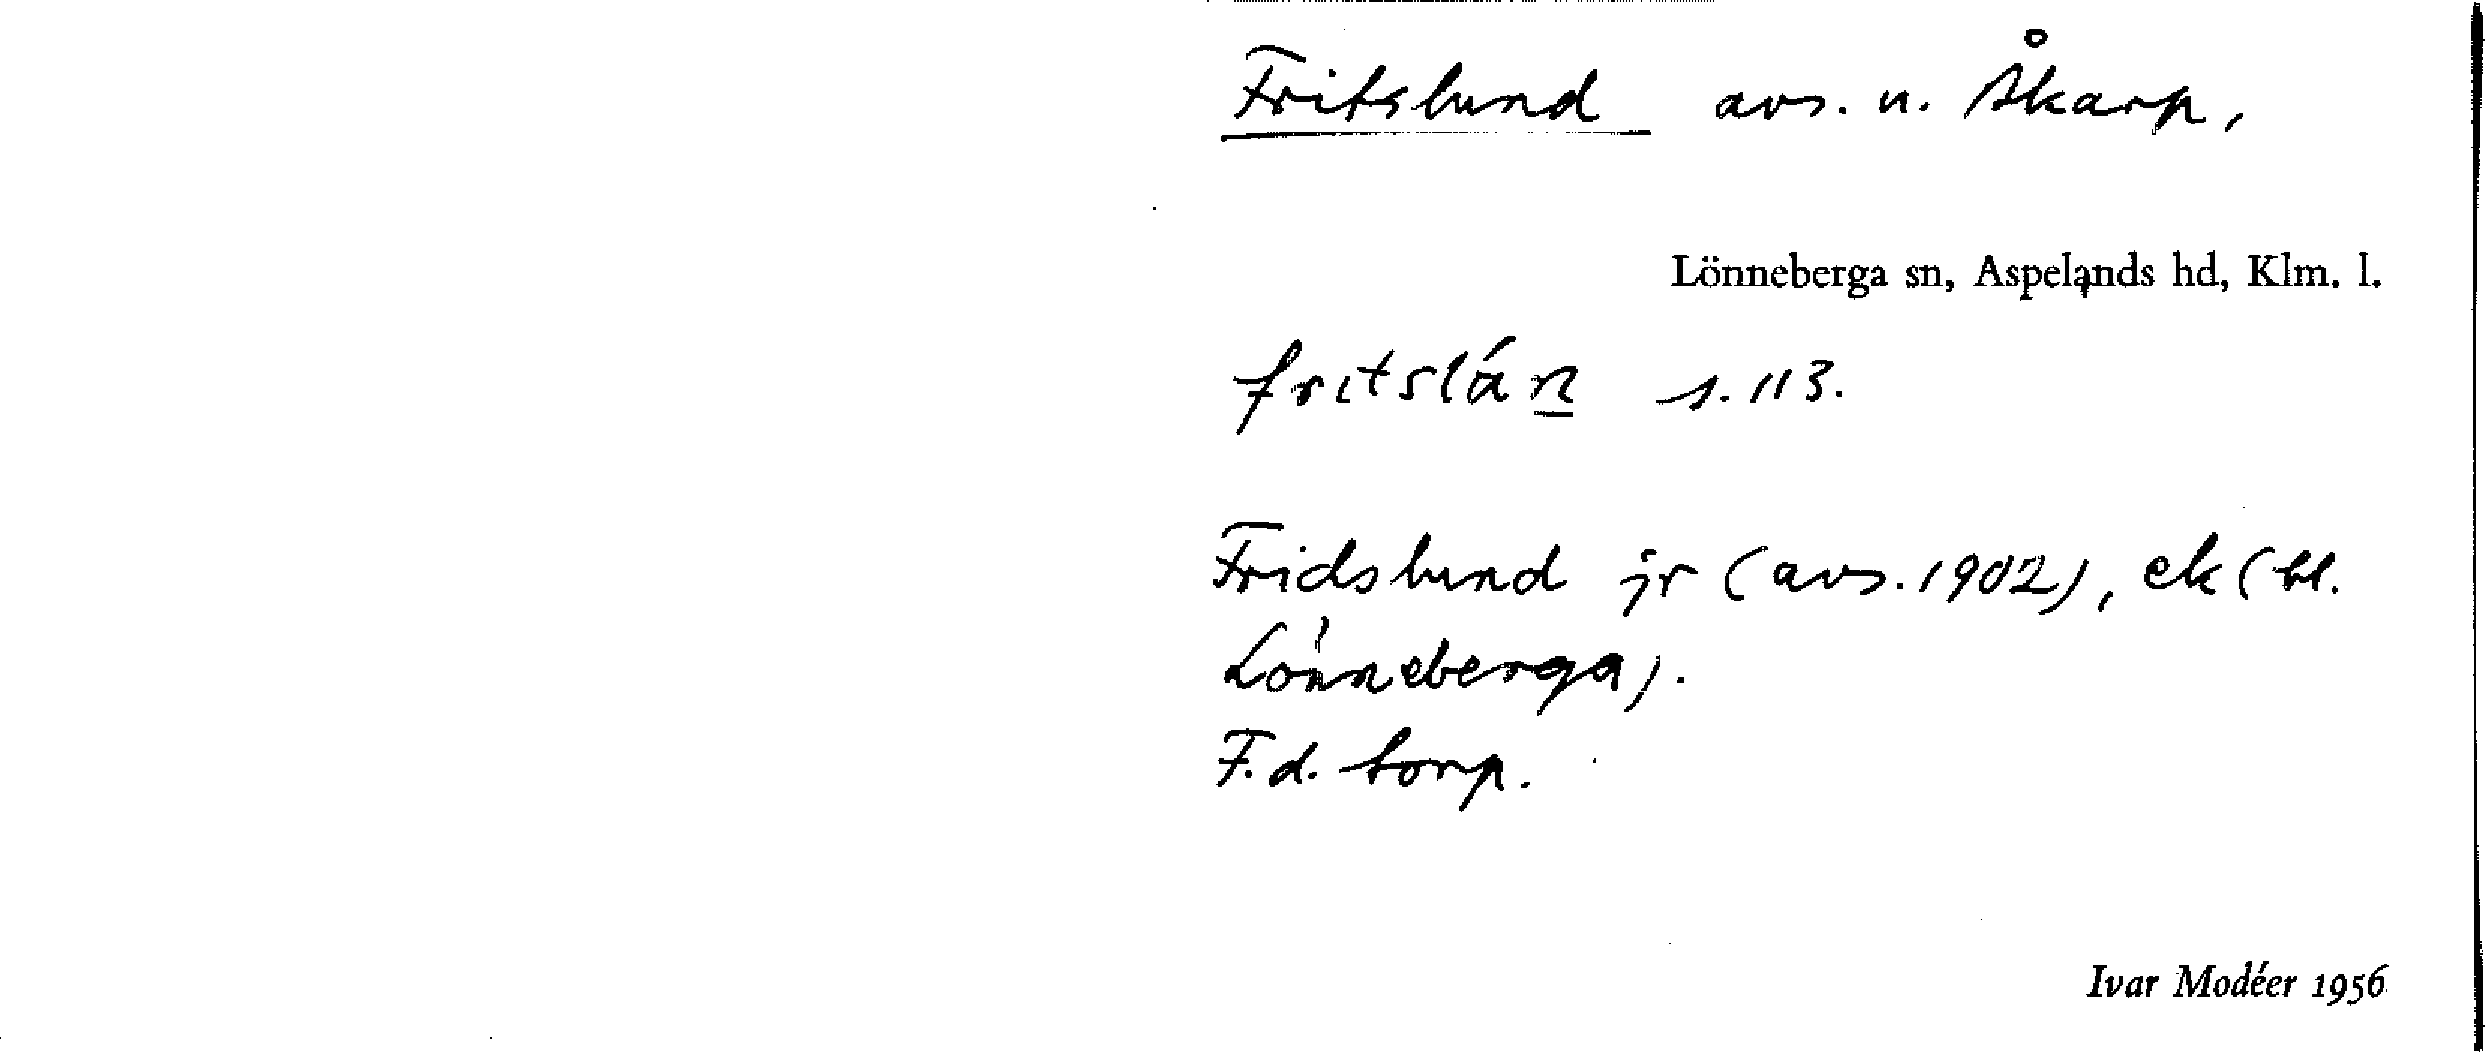 Fritslund avs. u. Åkarp,
Lönneberga sn, Aspelands hd, Klm. l.
fritslán s. 113.
Fridslund jr (avs. 1902), ek (bl.
Lönneberga).
F.d. torp.
Ivar Modéer 1956